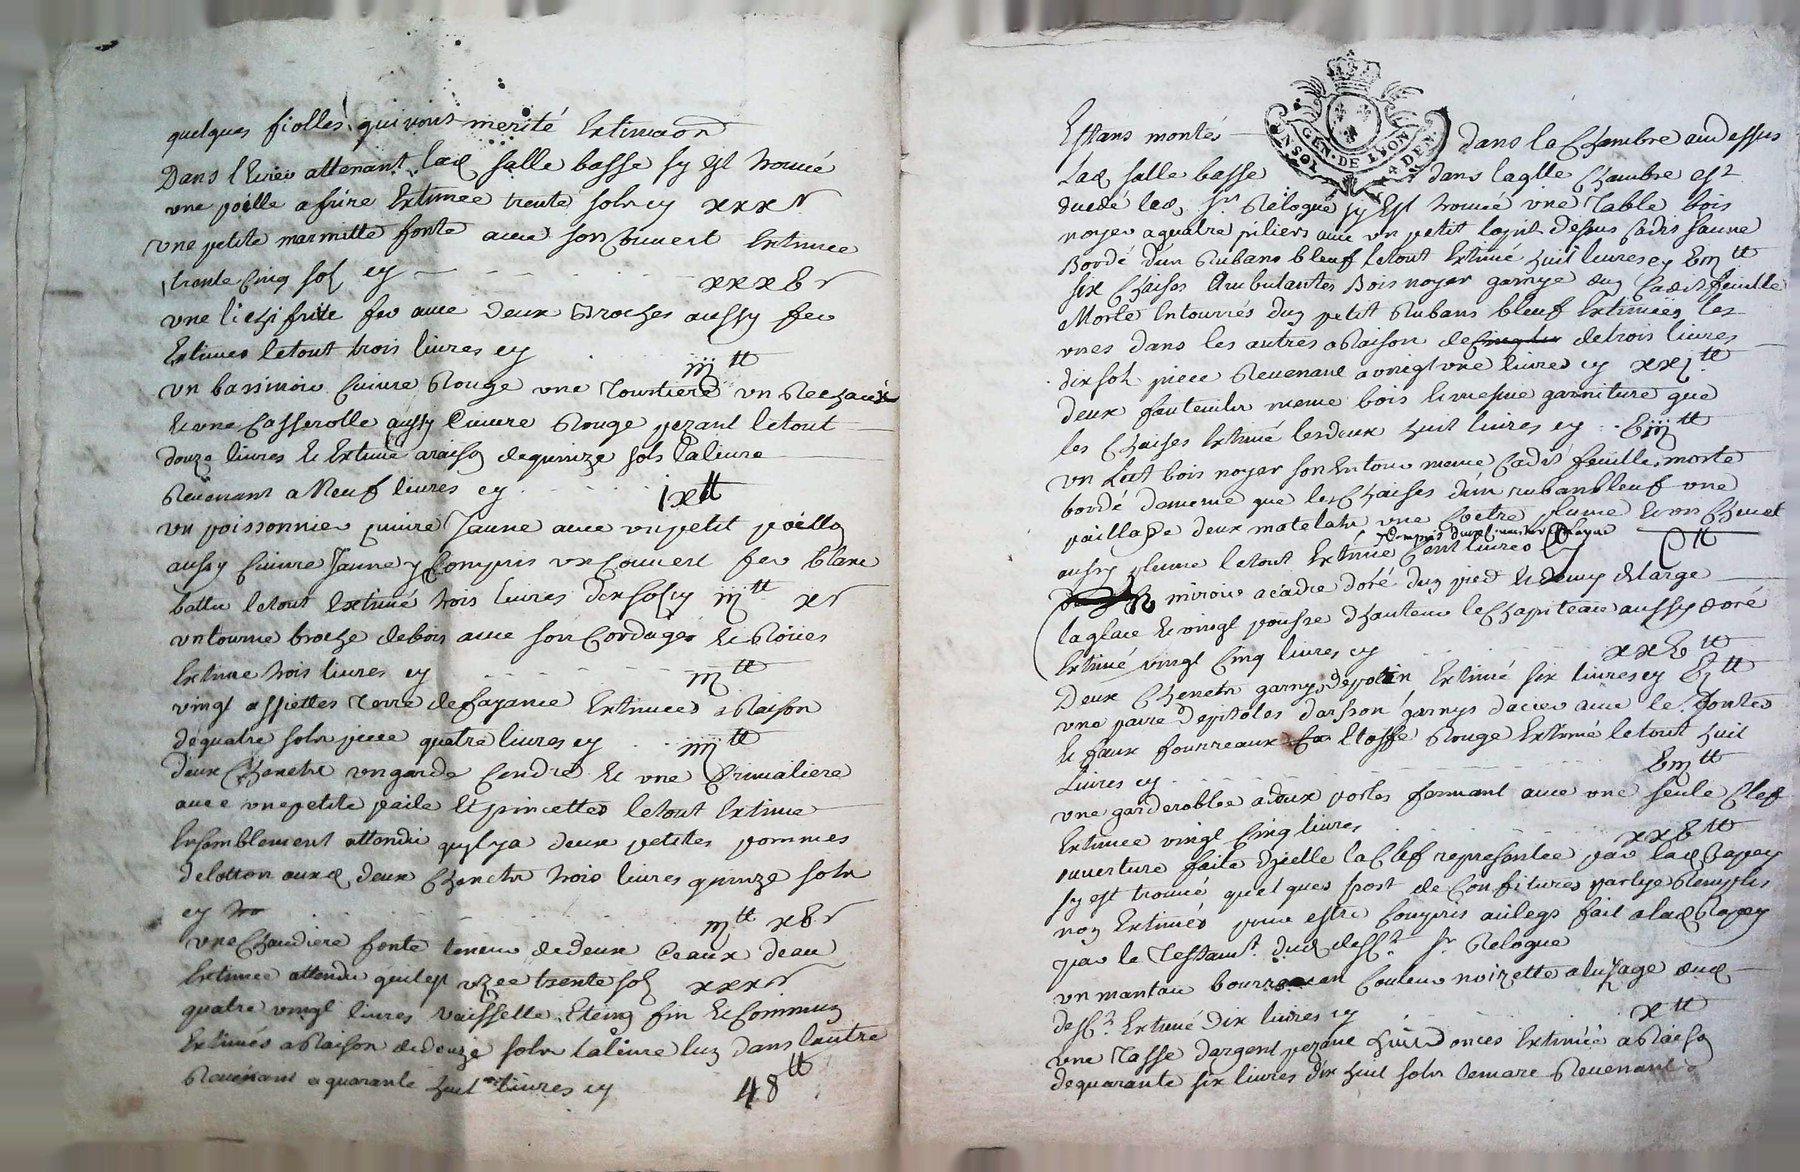 quelques fiolles qui nont merité Extimaon
Dans l'Evier attenant lad salle basse sy est trouvé
une poille a frire Extimee trente sols cy xxx s
une petite marmitte fonte avec son Couvert Extimee
trente Cinq sols cy xxxv s
une lichifritte fer avec deux Broches aussy fer
Extimes letout trois livres cy iij ₶
un bassinoir Cuivre Rouge une Tourtiere un Rechaux
et une Casserolle aussy Cuivre Rouge pezant letout
douze livres et Extimé araison dequinze sols Lalivre
Revenant a Neuf livres cy ix ₶
un poissonnier cuivre Jaune avec unpetit poillon
aussy Cuivre Jaune y Compris un Couvert fer blanc
battu letout Extimé trois livres dix sols cy iij ₶ x s
untourne broche debois avec son Cordages et Roues
Extimé trois livres cy iij ₶
vingt assiettes Terre defayance Extimees a Raison
dequatre sols piece quatre livres cy iiij ₶
deux Chenets un garde Cendre et une Crimaliere
avec unepetite paile Et pincettes letout Extime
Ensemblement attendu qu'il y a deux petites pommes
deLotton auxd deux Chenets trois livres quinze sols
cy iij ₶ xv s
une Chaudiere fonte teneur dedeux Ceaux deau
Extimee attendu quelest uzee trente sols xxx s
quatre vingt livres vaisselle Eteing fin et Commun
Extimés a Raison dedouze sols Lalivre lun dans lautre
Revenant a quarante huit livres cy 48 ₶
Estans montés dans la Chambre audessus
GEN · DE LYON
4 DEN
Lad salle basse dans laqlle Chambre est
ducdé led Sr Relogue sy Est trouvé une Table bois
noyer aquatre piliers avec un petit tapit dessus Cadis Jaune
Bordé d'un Rubans bleuf letout Extimé huit livres cy viij ₶
six Chaises Ambulantes Bois noyer garnye dun Cadis feuille
Morte Entourrés dun petit Rubans bleuf Extimées les
unes dans les autres a Raison de detrois livres
dix sols piece Revenant a vingt une livres cy xxj ₶
deux fauteuils meme bois et mesme garniture que
les Chaises Extimé lesdeux huit livres cy viij ₶
un Lict bois noyer son Entour meme Cadis feuille morte
bordé dememe que les Chaises d'un ruban bleuf une
paillasse deux matelats une Coetre plume et un Chevet
y Compris deux
aussy plume letout Extimé Cent livres C ₶
miroir acadre doré dun pied et demy delarge
laglace et vingt pousse dhauteur le Chapiteau aussy doré
Extimé vingt Cinq livres cy xxv ₶
Deux Chenets garnys depotin Extimé six livres cy vj ₶
une paire depistoles darson garnys dacier avec le pontet
et faux fourreaux Etoffe Rouge Extimé letout huit
Livres cy viij ₶
une garderoblee adeux portes fermant avec une seule Clef
Extimee vingt Cinq livres xxv ₶
ouverture faite d'icelle la Clef representee par lad Chapey
sy est trouvé quelques post de Confitures partye Remplis
non Extimés pour estre Compris aulegs fait alad Chapey
par le Testamt dud defft Sr Relogue
un manteau Couleur noizette a luzage dud
deft Extimé dix livres cy x ₶
une Tasse dargent pezant huit onces Extimée a Raison
dequarante six livres dix huit sols lemarc Revenant a